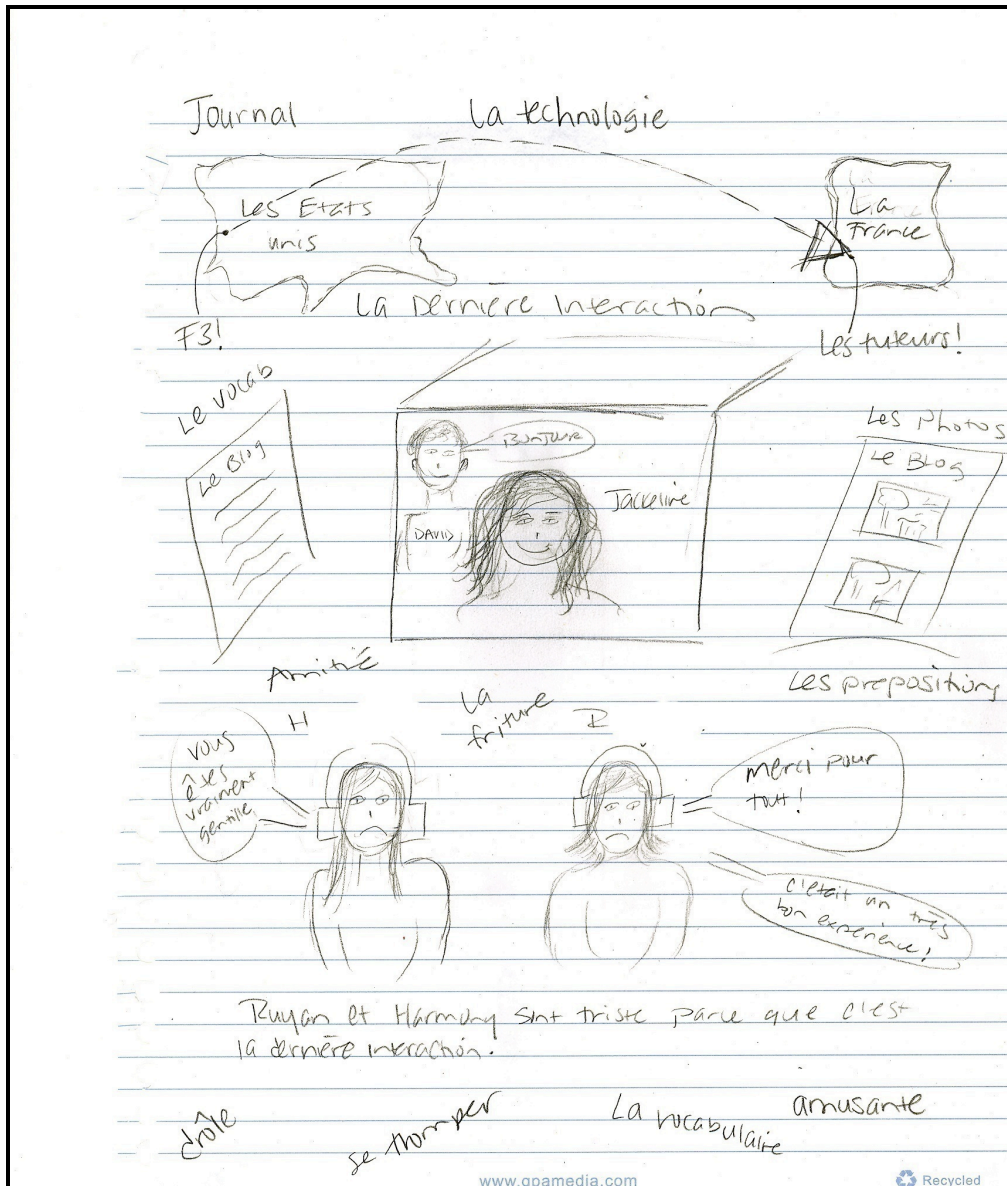 Journal
La technologie
Les Etats
unis
La
France
F3!
La Dernière Interaction
Les tuteurs!
Le vocab
Le Blog
BONJOUR
DAVID
Jackeline
Les Photos
Le Blog
Amitié
La
friture
Les prepositions
H
R
vous
êtes
vraiment
gentille
merci pour
tout!
c'était un très
bon experience!
Ruyan et Harmony sont triste parce que c'est
la dernère interaction.
drôle
se tromper
La vocabulaire
amusante
www.gpamedia.com
Recycled